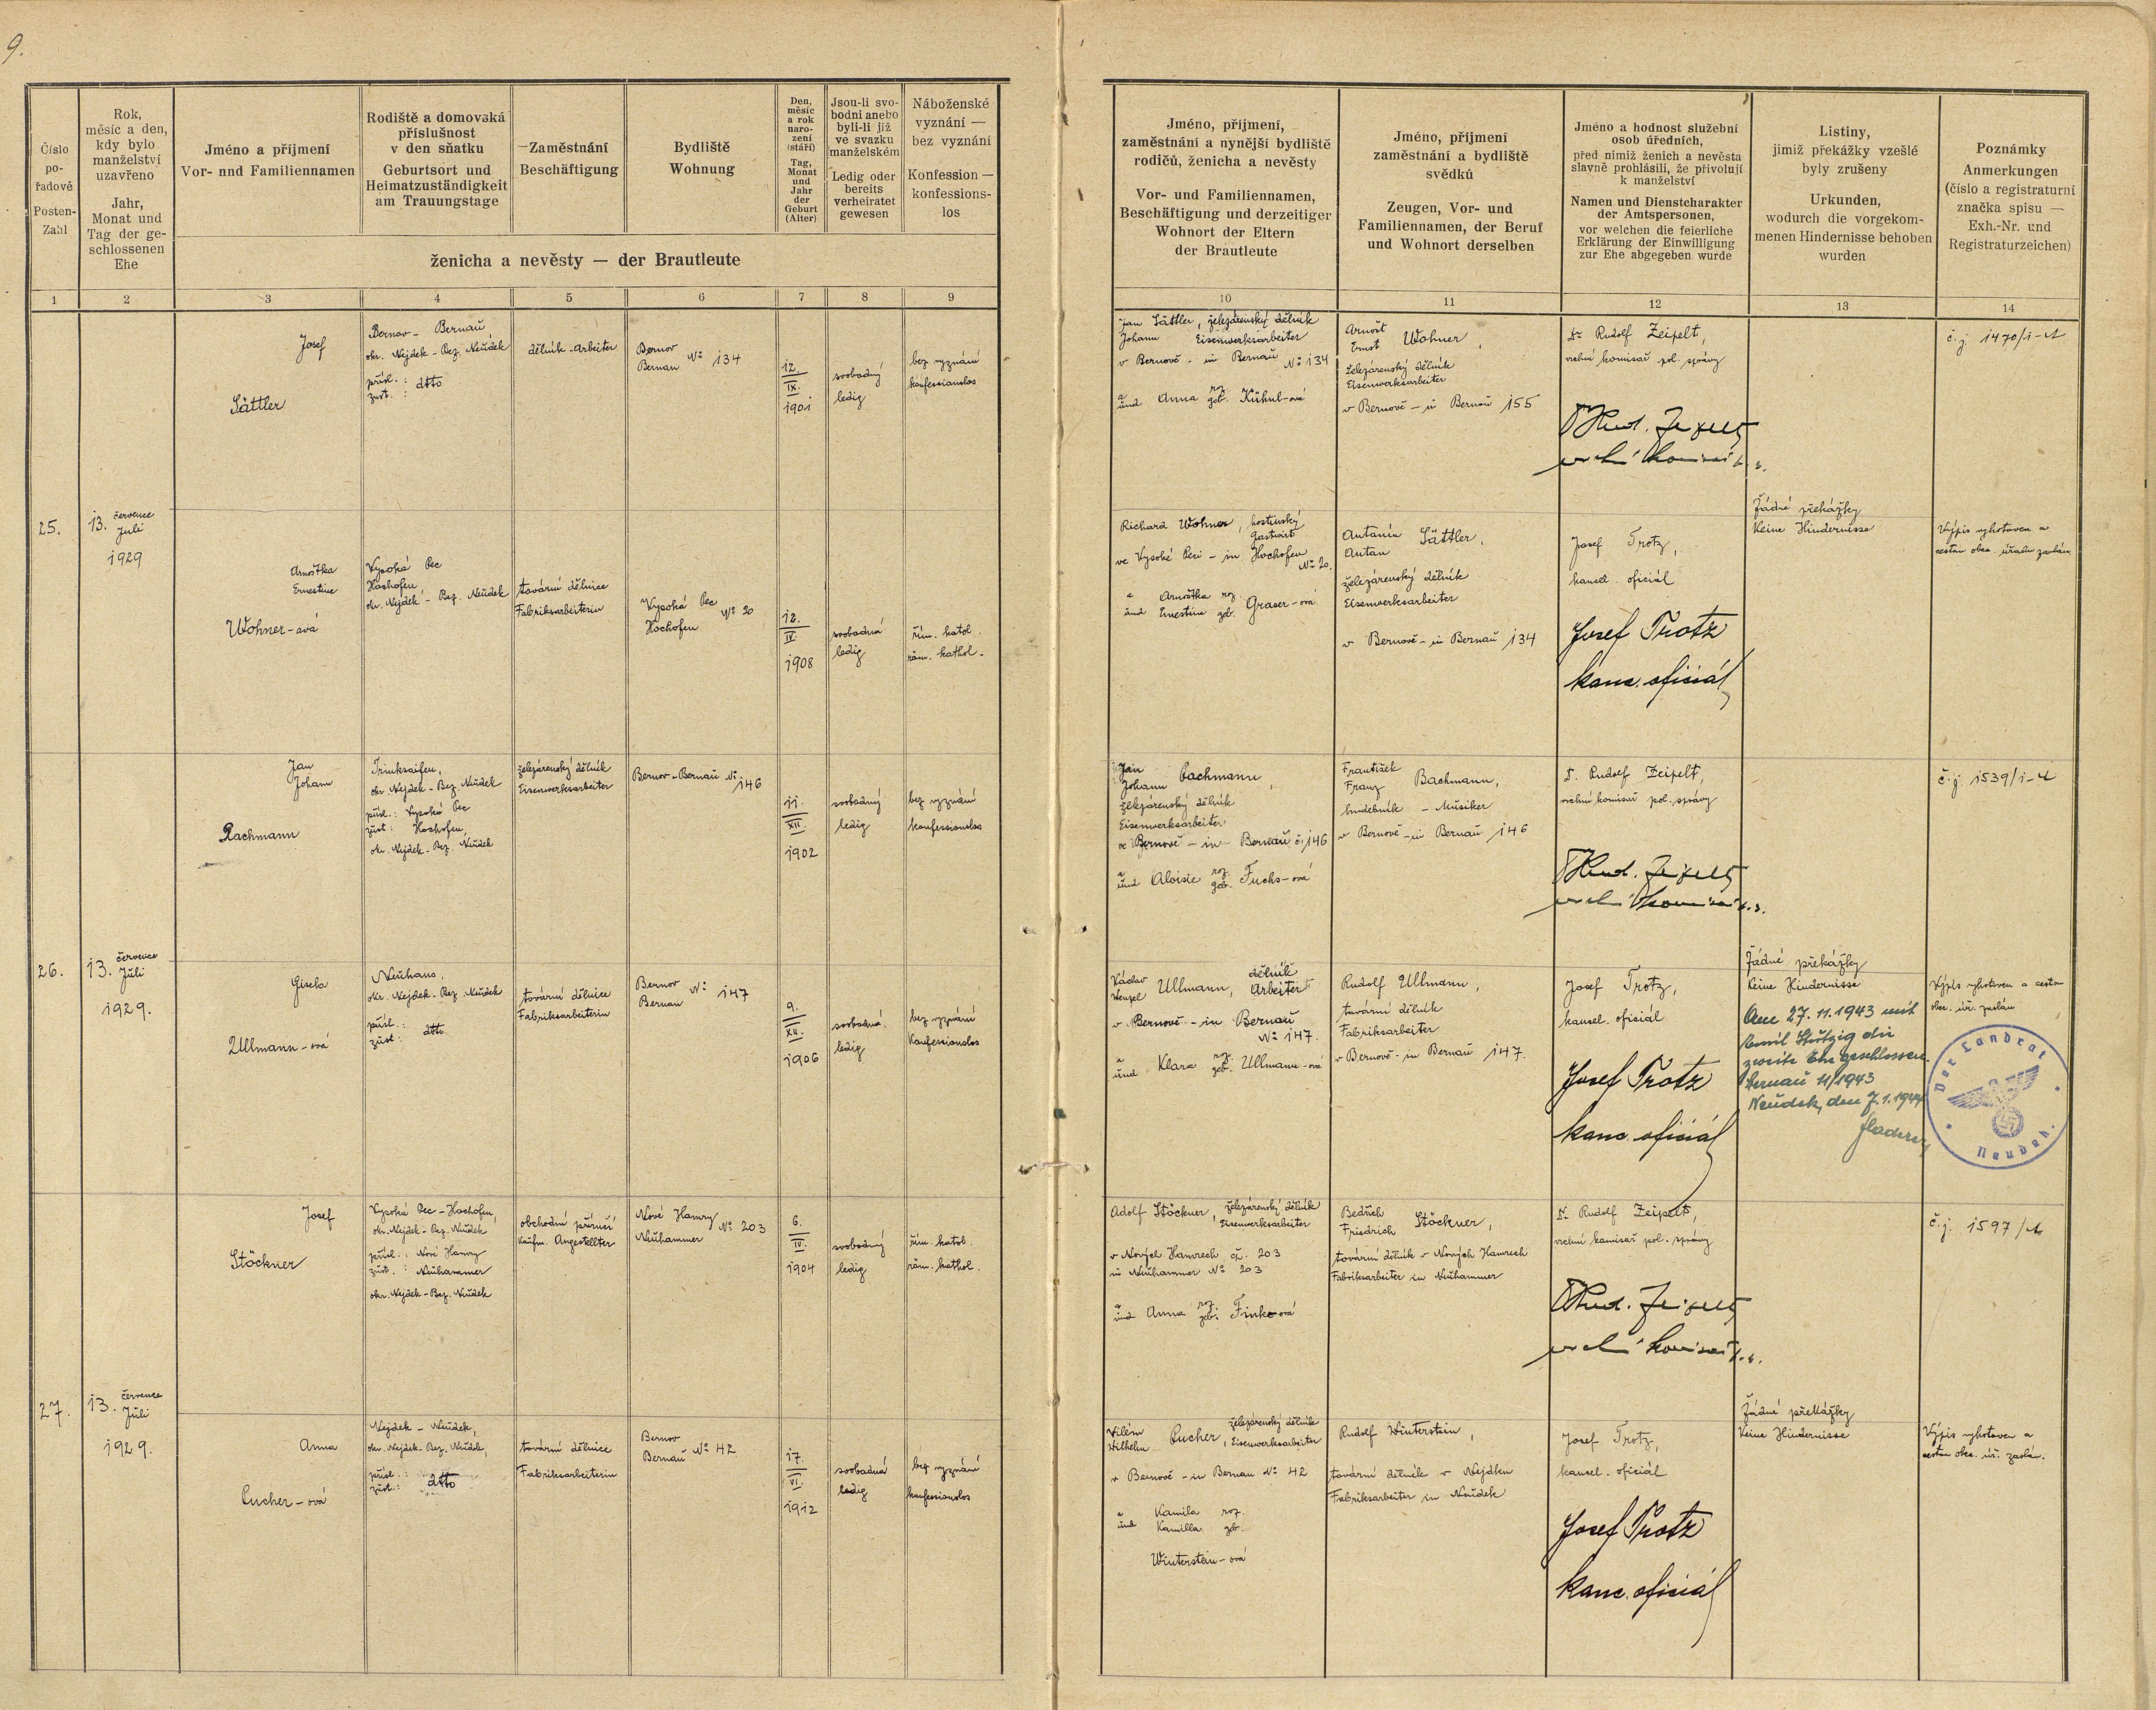 9.
Číslo
po-
řadové
Posten-
Zahl
Rok,
měsíc a den,
kdy bylo
manželství
uzavřeno
Jahr,
Monat und
Tag der ge-
schlossenen
Ehe
Jméno a příjmení
Vor- nnd Familiennamen
Rodiště a domovská
příslušnost
v den sňatku
Geburtsort und
Heimatzuständigkeit
am Trauungstage
Zaměstnání
Beschäftigung
Bydliště
Wohnung
Den,
měsíc
a rok
naro-
zení
(stáří)
Tag,
Monat
und
Jahr
der
Geburt
(Alter)
Jsou-li svo-
bodni anebo
byli-li již
ve svazku
manželském
Ledig oder
bereits
verheiratet
gewesen
Náboženské
vyznání —
bez vyznání
Konfession —
konfessions-
los
ženicha a nevěsty — der Brautleute
Jméno, příjmení,
zaměstnání a nynější bydliště
rodičů, ženicha a nevěsty
Vor- und Familiennamen,
Beschäftigung und derzeitiger
Wohnort der Eltern
der Brautleute
Jméno, příjmení
zaměstnání a bydliště
svědků
Zeugen, Vor- und
Familiennamen, der Beruf
und Wohnort derselben
Jméno a hodnost služební
osob úředních,
před nimiž ženich a nevěsta
slavně prohlásili, že přivolují
k manželství
Namen und Dienstcharakter
der Amtspersonen,
vor welchen die feierliche
Erklärung der Einwilligung
zur Ehe abgegeben wurde
Listiny,
jimiž překážky vzešlé
byly zrušeny
Urkunden,
wodurch die vorgekom-
menen Hindernisse behoben
wurden
Poznámky
Anmerkungen
(číslo a registraturní
značka spisu —
Exh.-Nr. und
Registraturzeichen)
1 2 3 4 5 6 7 8 9 10 11 12 13 14
25.
13. července
Juli
1929
Josef
Sättler
Bernov - Bernau
okr. Nejdek - Bez. Neudek
přísl. :
zust. : dtto
dělník - Arbeiter
Bernov
Bernau No 134
12.
IX.
1901
svobodný
ledig
bez vyznání
konfessionslos
Jan Sättler, železárenský dělník
Johann Eisenwerksarbeiter
v Bernově - in Bernau No 134
a roz.
und Anna geb. Kühnl-ová
Arnošt
Ernst Wohner,
železárenský dělník
Eisenwerksarbeiter
v Bernově - in Bernau 155
Dr Rudolf Zeipelt,
vrchní komisař pol. správy
č.j. 1470/1-A
Arnoštka
Ernestine
Wohner-ová
Vysoká Pec
Hochofen
okr. Nejdek - Bez. Neudek
tovární dělnice
Fabriksarbeiterin
Vysoká Pec
Hochofen No 20
12.
IV.
1908
svobodná
ledig
řím. katol.
röm. kathol.
Richard Wohner, hostinský
Gastwirt
ve Vysoké Peci - in Hochofen
No 20.
a Arnoštka roz.
und Ernestine geb. Graser-ová
Antonín
Anton Sättler,
železárenský dělník
Eisenwerksarbeiter
v Bernově - in Bernau 134
Josef Trotz,
kancel. oficiál
Josef Trotz
kanc. oficiál
Žádné překážky
Keine Hindernisse
Výpis vyhotoven a
cestou obec. úřadu zaslán
26.
13. července
Juli
1929.
Jan
Johann
Bachmann
Trinksaifen,
okr. Nejdek - Bez. Neudek
přísl.: Vysoká Pec
zust: Hochofen,
okr. Nejdek - Bez. Neudek
železárenský dělník
Eisenwerksarbeiter
Bernov - Bernau No 146
11.
XII.
1902
svobodný
ledig
bez vyznání
konfessionslos
Jan
Johann Bachmann,
železárenský dělník
Eisenwerksarbeiter
ve Bernově - in Bernau č. 146
a roz.
und Aloisie geb. Fuchs-ová
František
Franz Bachmann,
hudebník - Musiker
v Bernově - in Bernau 146
Dr. Rudolf Zeipelt,
vrchní komisař pol. správy
č.j. 1539/1-A
Gisela
Ullmann-ová
Neuhaus,
okr. Nejdek - Bez. Neudek
přísl.:
zust: dtto
tovární dělnice
Fabriksarbeiterin
Bernov
Bernau No 147
9.
XII.
1906
svobodná
ledig
bez vyznání
Konfessionslos
Václav
Wenzel Ullmann, dělník
Arbeiter
v Bernově - in Bernau
No 147.
a roz.
und Klara geb. Ullmann-ová
Rudolf Ullmann,
tovární dělník
Fabriksarbeiter
v Bernově - in Bernau 147.
Josef Trotz,
kancel. oficiál
Josef Trotz
kanc. oficiál
Žádné překážky
Keine Hindernisse
Am 27. 11. 1943 mit
Emil Stötzig die
zweite Ehe geschlossen.
Bernau 11/1943
Neudek, den 7. 1. 1944
Výpis vyhotoven a cestou
obec. úř. zaslán
Der Landrat
Neudek.
27.
13. července
Juli
1929.
Josef
Stöckner
Vysoká Pec - Hochofen,
okr. Nejdek - Bez. Neudek
přísl. : Nové Hamry
zust. : Neuhammer
okr. Nejdek - Bez. Neudek
obchodní příručí
Kaufm. Angestellter
Nové Hamry
Neuhammer No 203
6.
IV.
1904
svobodný
ledig
řím. katol.
röm. kathol.
Adolf Stöckner, železárenský dělník
Eisenwerksarbeiter
v Nových Hamrech č. 203
in Neuhammer No 203
a roz.
und Anna geb. Fink-ová
Bedřich
Friedrich Stöckner,
tovární dělník v Nových Hamrech
Fabriksarbeiter in Neuhammer
Dr Rudolf Zeipelt,
vrchní komisař pol. správy
č.j. 1597/A
Anna
Pucher-ová
Nejdek - Neudek,
okr. Nejdek - Bez. Neudek,
přísl.:
zust.: dtto
tovární dělnice
Fabriksarbeiterin
Bernov
Bernau No 42
17.
VI.
1912
svobodná
ledig
bez vyznání
konfessionslos
Vilém
Wilhelm Pucher, železárenský dělník
Eisenwerksarbeiter
v Bernově - in Bernau No 42
a Kamila roz.
und Kamilla geb.
Winterstein-ová
Rudolf Winterstein,
tovární dělník v Nejdku
Fabriksarbeiter in Neudek
Josef Trotz,
kancel. oficiál
Josef Trotz
kanc. oficiál
Žádné překážky
Keine Hindernisse
Výpis vyhotoven a
cestou obec. úř. zaslán.